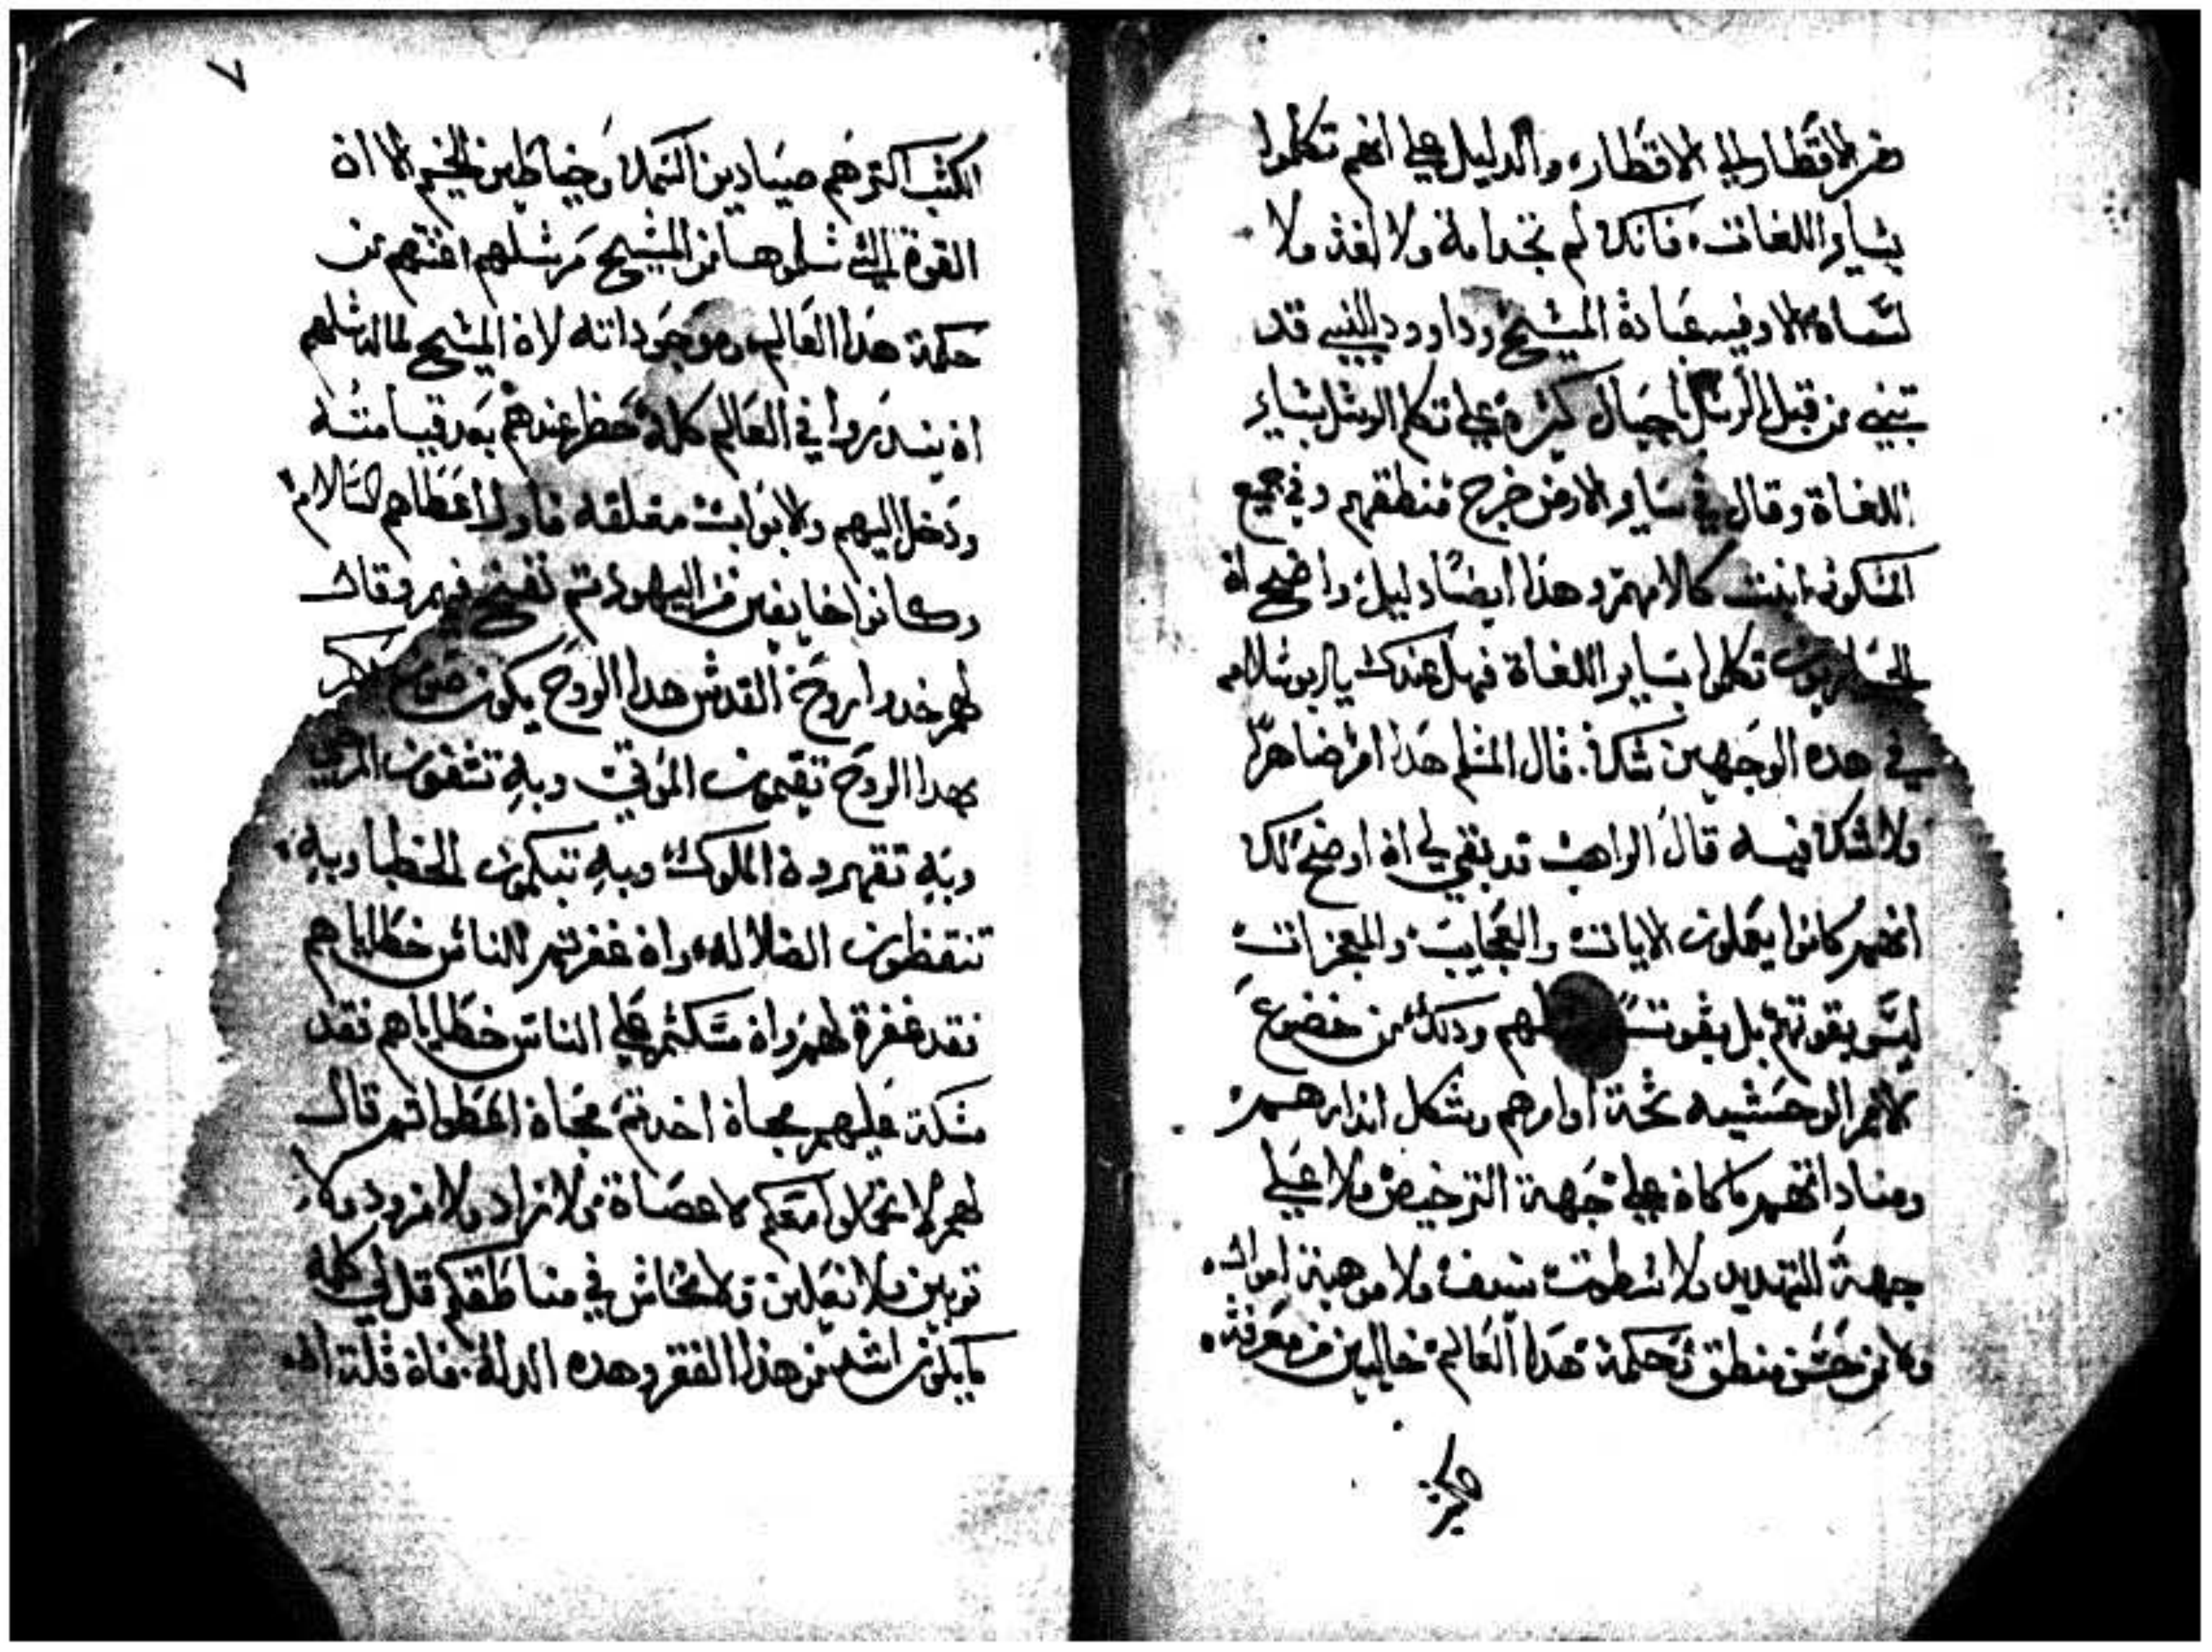 من الاقطار الي الاقطار، والدليل علي انهم تكلموا
بساير اللغات، فانك لم تجد امة ولا لغة ولا
لسان الا وفيه عبادة المسيح وداوود النبي قد
تنبي من قبل الرسل باجيال كثيرة علي تكلم الرسل بساير
اللغاة وقال في ساير الارض خرج منطقهم وفي جميع
المسكونه انبثت كلامهم وهذا ايضًا دليل واضح ان
الحواريون تكلموا بساير اللغاة فهل عندك يا ابو سلامه
في هده الوجهين شك. قال المسلم هدا امر ضاهرًا
ولا شك فيه قال الراهب قد بقي لي ان اوضح لك
انهم كانوا يعملون الايات والعجايب والمعجزات
ليس بقوتهم بل بقوت وذلك من خضوع
الامم الوحشيه تحت اوامرهم وشكل اندارهم
ومناداتهم ما كان علي جهة الترخيص ولا علي
جهة التهديد ولا سطوت سيف ولا موهبة اموال
ولا من حسن منطق وحكمة هدا العالم خاليين من معرفة
٧
الكتب اكترهم صيادين السمك وخياطين الخيم الا ان
القوة التي تسلموها من المسيح مرسلهم اغنتهم عن
حكمة هدا العالم وموجوداته لان المسيح لما ارسلهم
ان يندروا في العالم كله حضر عندهم بعد قيامته
ودخل اليهم والابواب مغلقه فاولا اعطاهم السلام
وكانوا خايفين من اليهود تم نفخ فيهم وقال
لهم خدوا روح القدس هدا الروح يكون
بهدا الروح تقيمون الموتي وبهِ تشفون المرضي
وبهِ تقهرون الملوك وبهِ تبكمون الخطبا وبهِ
تنقضون الضلاله، وان غفرتم للناس خطاياهم
فقد غفرة لهم وان مسكتم علي الناس خطاياهم فقد
مسكة عليهم مجاة اخدتم مجاة اعطوا تم قال
لهم لا تحملوا معكم لا عصاة ولا زاد ولا مزود ولا
توبين ولا نعلين ولا نحاس في مناطقكم قل لي
ما يكون اشد من هذا الفقر وهده الدلة. فان قلة